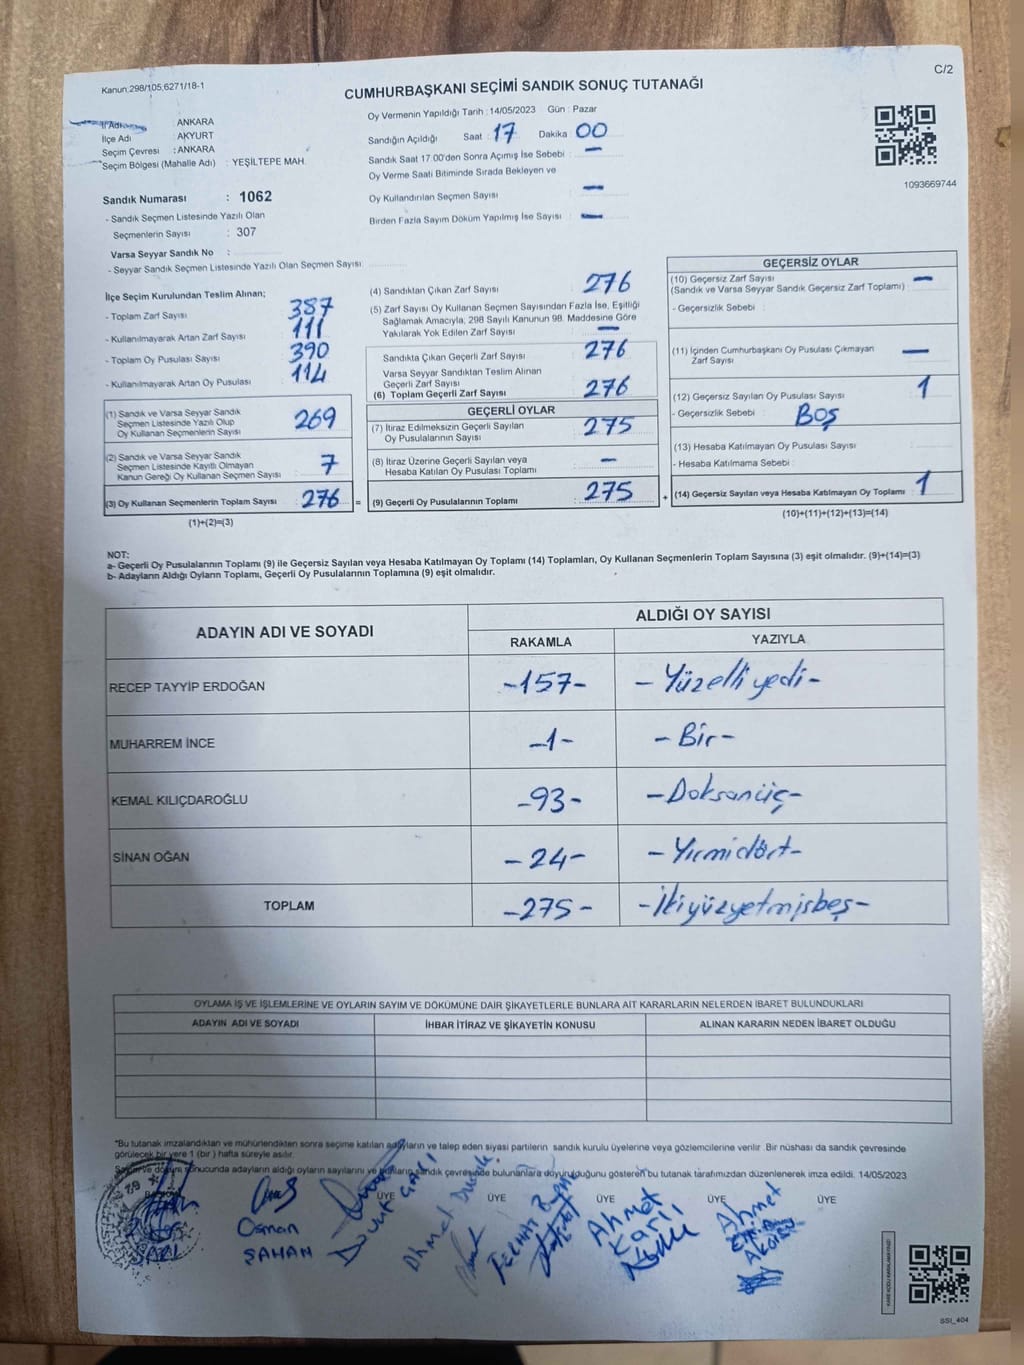 Kanun:298/105,6271/18-1
C/2
CUMHURBAŞKANI SEÇİMİ SANDIK SONUÇ TUTANAĞI
İl Adı ANKARA
İlçe Adı AKYURT
Seçim Çevresi : ANKARA
Seçim Bölgesi (Mahalle Adı) : YEŞİLTEPE MAH.
Sandık Numarası : 1062
- Sandık Seçmen Listesinde Yazılı Olan
Seçmenlerin Sayısı : 307
Varsa Seyyar Sandık No :
- Seyyar Sandık Seçmen Listesinde Yazılı Olan Seçmen Sayısı:
Oy Vermenin Yapıldığı Tarih : 14/05/2023 Gün : Pazar
Sandığın Açıldığı Saat : 17 Dakika : 00
Sandık Saat 17.00'den Sonra Açımış İse Sebebi : —
Oy Verme Saati Bitiminde Sırada Bekleyen ve
Oy Kullandırılan Seçmen Sayısı : —
Birden Fazla Sayım Döküm Yapılmış İse Sayısı : —
1093669744
İlçe Seçim Kurulundan Teslim Alınan;
- Toplam Zarf Sayısı : 387
- Kullanılmayarak Artan Zarf Sayısı : 111
- Toplam Oy Pusulası Sayısı : 390
- Kullanılmayarak Artan Oy Pusulası : 114
(1) Sandık ve Varsa Seyyar Sandık
Seçmen Listesinde Yazılı Olup
Oy Kullanan Seçmenlerin Sayısı : 269
(2) Sandık ve Varsa Seyyar Sandık
Seçmen Listesinde Kayıtlı Olmayan
Kanun Gereği Oy Kullanan Seçmen Sayısı : 7
(3) Oy Kullanan Seçmenlerin Toplam Sayısı : 276 =
(1)+(2)=(3)
(4) Sandıktan Çıkan Zarf Sayısı : 276
(5) Zarf Sayısı Oy Kullanan Seçmen Sayısından Fazla İse, Eşitliği
Sağlamak Amacıyla, 298 Sayılı Kanunun 98. Maddesine Göre
Yakılarak Yok Edilen Zarf Sayısı : —
Sandıkta Çıkan Geçerli Zarf Sayısı : 276
Varsa Seyyar Sandıktan Teslim Alınan
Geçerli Zarf Sayısı :
(6) Toplam Geçerli Zarf Sayısı : 276
GEÇERLİ OYLAR
(7) İtiraz Edilmeksizin Geçerli Sayılan
Oy Pusulalarının Sayısı : 275
(8) İtiraz Üzerine Geçerli Sayılan veya
Hesaba Katılan Oy Pusulası Toplamı : —
(9) Geçerli Oy Pusulalarının Toplamı : 275 +
GEÇERSİZ OYLAR
(10) Geçersiz Zarf Sayısı
(Sandık ve Varsa Seyyar Sandık Geçersiz Zarf Toplamı) : —
- Geçersizlik Sebebi :
(11) İçinden Cumhurbaşkanı Oy Pusulası Çıkmayan
Zarf Sayısı : —
(12) Geçersiz Sayılan Oy Pusulası Sayısı : 1
- Geçersizlik Sebebi : BOŞ
(13) Hesaba Katılmayan Oy Pusulası Sayısı :
- Hesaba Katılmama Sebebi :
(14) Geçersiz Sayılan veya Hesaba Katılmayan Oy Toplamı : 1
(10)+(11)+(12)+(13)=(14)
NOT:
a- Geçerli Oy Pusulalarının Toplamı (9) ile Geçersiz Sayılan veya Hesaba Katılmayan Oy Toplamı (14) Toplamları, Oy Kullanan Seçmenlerin Toplam Sayısına (3) eşit olmalıdır. (9)+(14)=(3)
b- Adayların Aldığı Oyların Toplamı, Geçerli Oy Pusulalarının Toplamına (9) eşit olmalıdır.
ADAYIN ADI VE SOYADI ALDIĞI OY SAYISI
RAKAMLA YAZIYLA
RECEP TAYYİP ERDOĞAN -157- - Yüzelli yedi -
MUHARREM İNCE -1- - Bir -
KEMAL KILIÇDAROĞLU -93- - Doksanüç -
SİNAN OĞAN -24- - Yirmidört -
TOPLAM -275- - İkiyüzyetmişbeş -
OYLAMA İŞ VE İŞLEMLERİNE VE OYLARIN SAYIM VE DÖKÜMÜNE DAİR ŞİKAYETLERLE BUNLARA AİT KARARLARIN NELERDEN İBARET BULUNDUKLARI
ADAYIN ADI VE SOYADI İHBAR İTİRAZ VE ŞİKAYETİN KONUSU ALINAN KARARIN NEDEN İBARET OLDUĞU
*Bu tutanak imzalandıktan ve mühürlendikten sonra seçime katılan adayların ve talep eden siyasi partilerin sandık kurulu üyelerine veya gözlemcilerine verilir. Bir nüshası da sandık çevresinde
görülecek bir yere 1 (bir) hafta süreyle asılır.
sonucunda adayların aldığı oyların sayılarını ve sandık çevresinde bulunanlara duyurulduğunu gösteren bu tutanak tarafımızdan düzenlenerek imza edildi. 14/05/2023
ÜYE ÜYE ÜYE ÜYE ÜYE
Osman
ŞAHAN
Ahmet
Ahmet
SSI_404